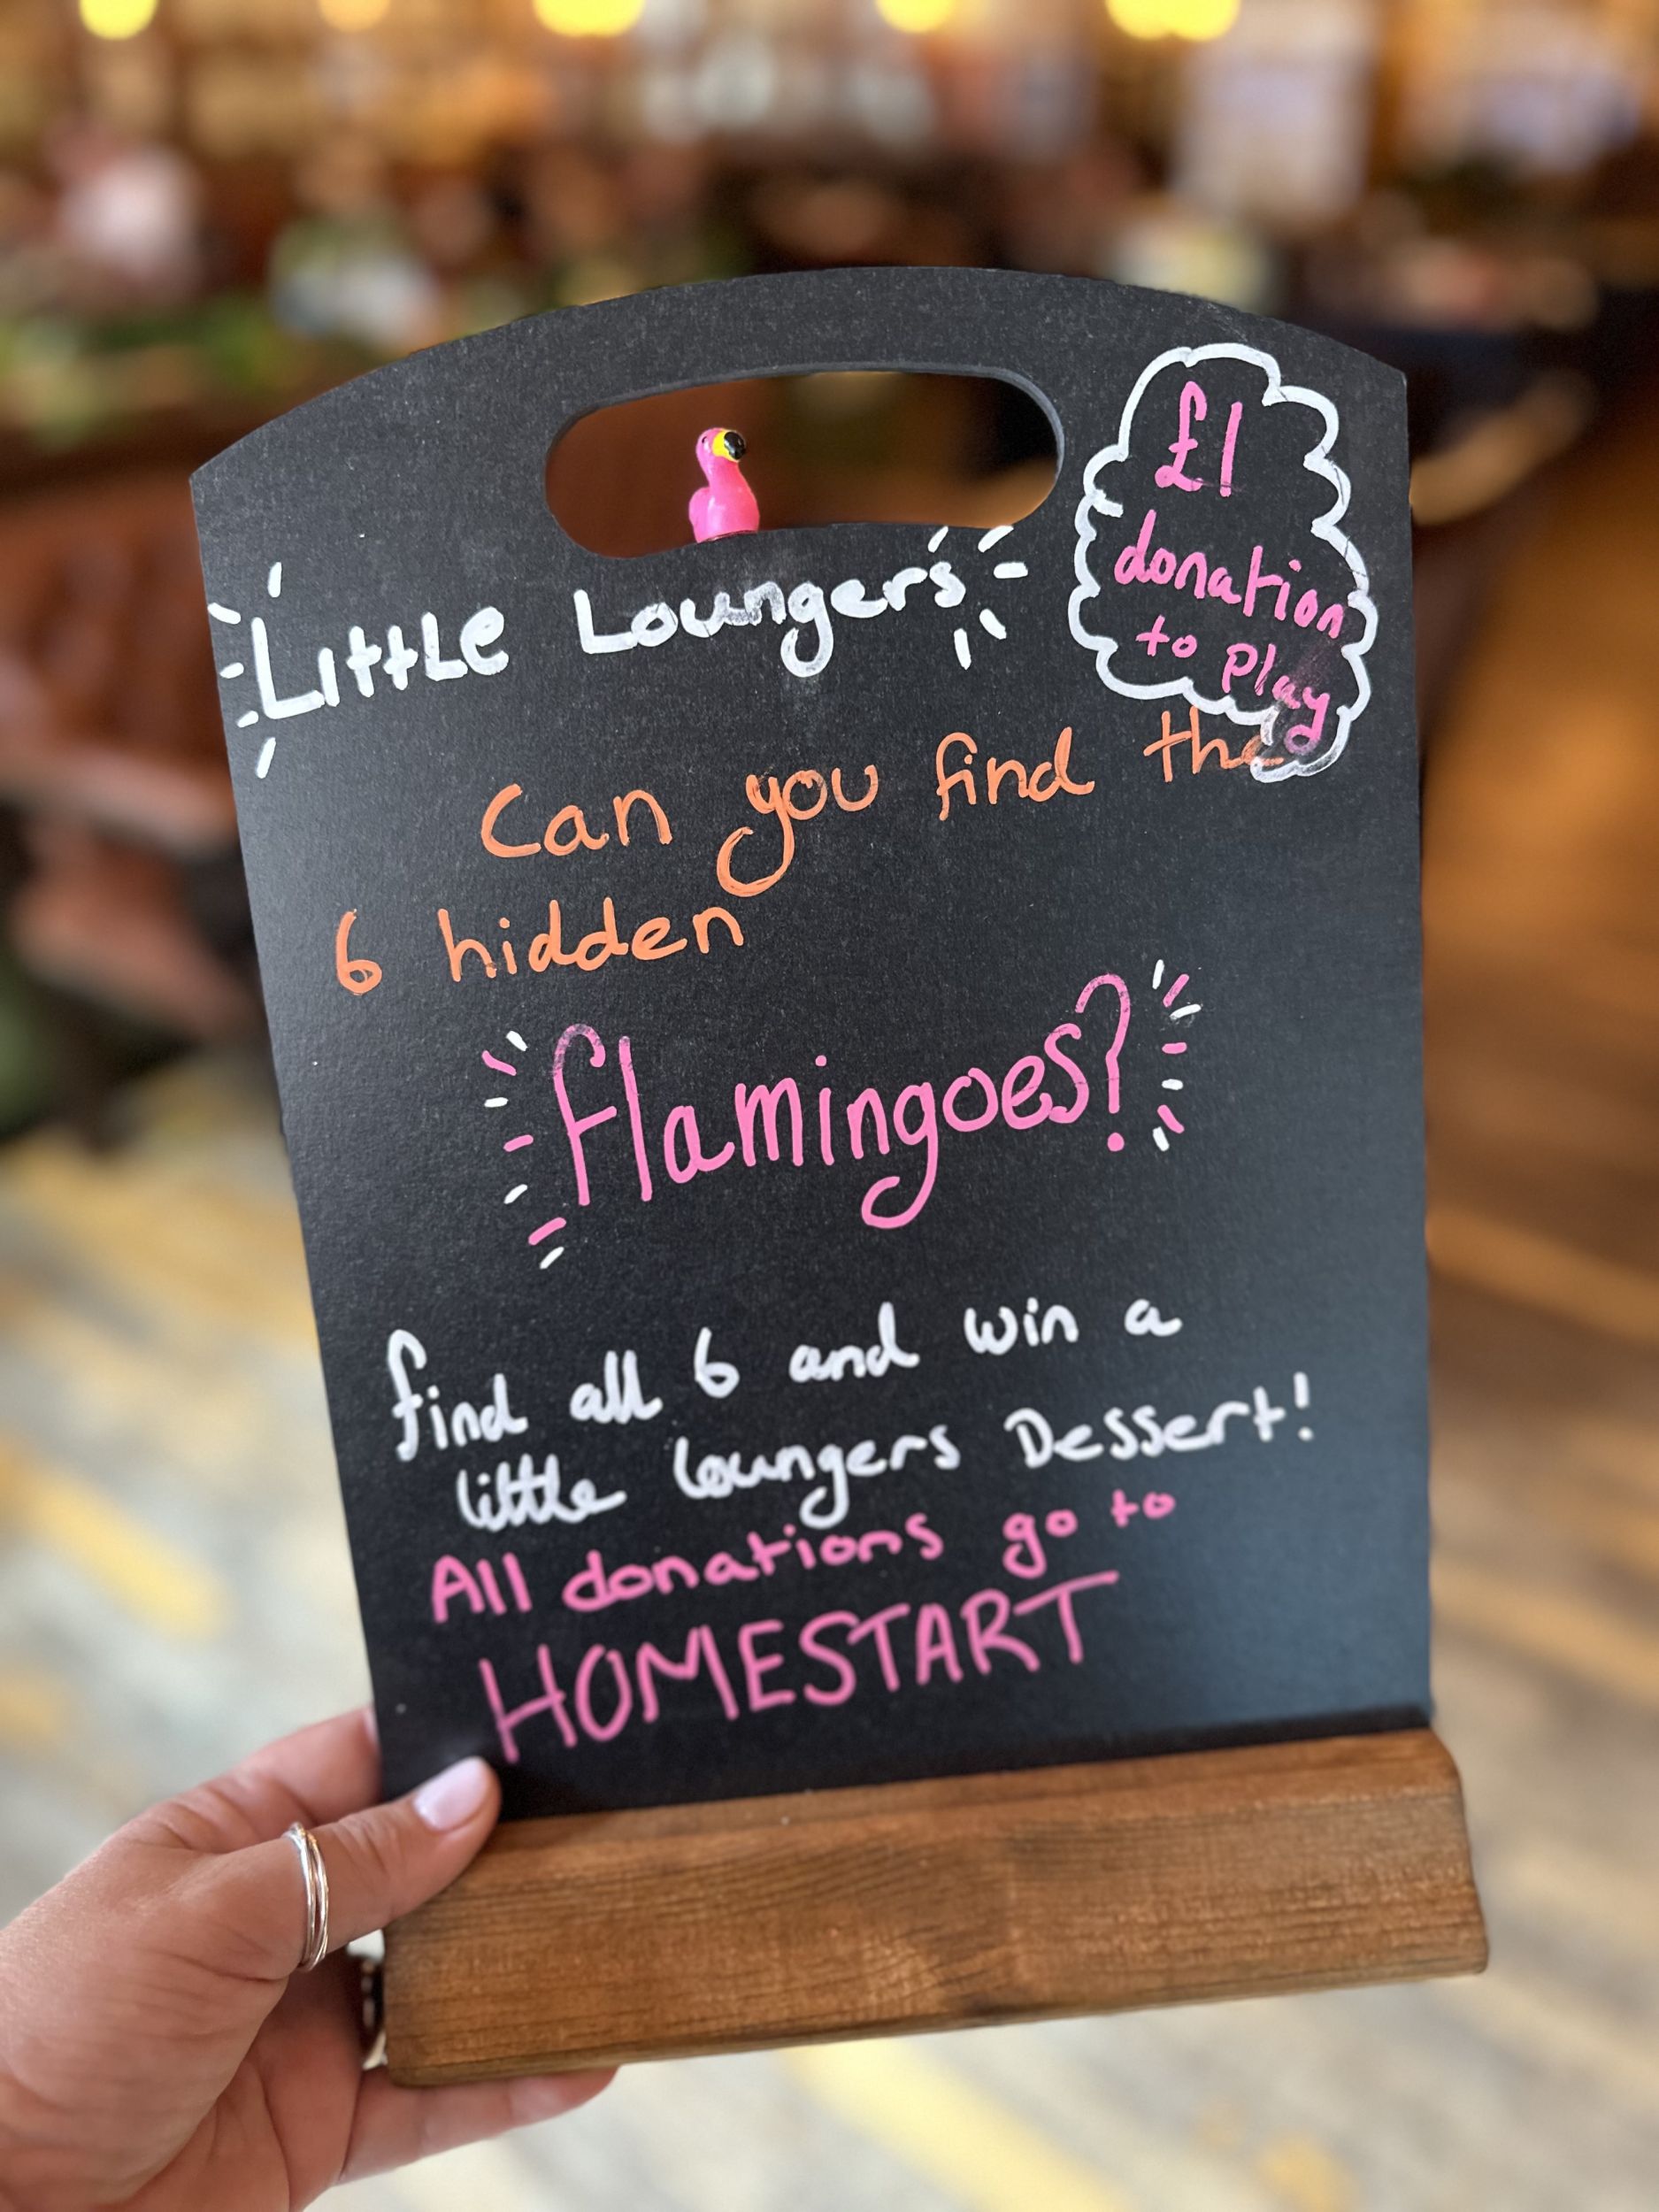 Little Loungers
£1
donation
to play
Can you find the
6 hidden
flamingoes?
find all 6 and win a
little loungers Dessert!
All donations go to
HOMESTART